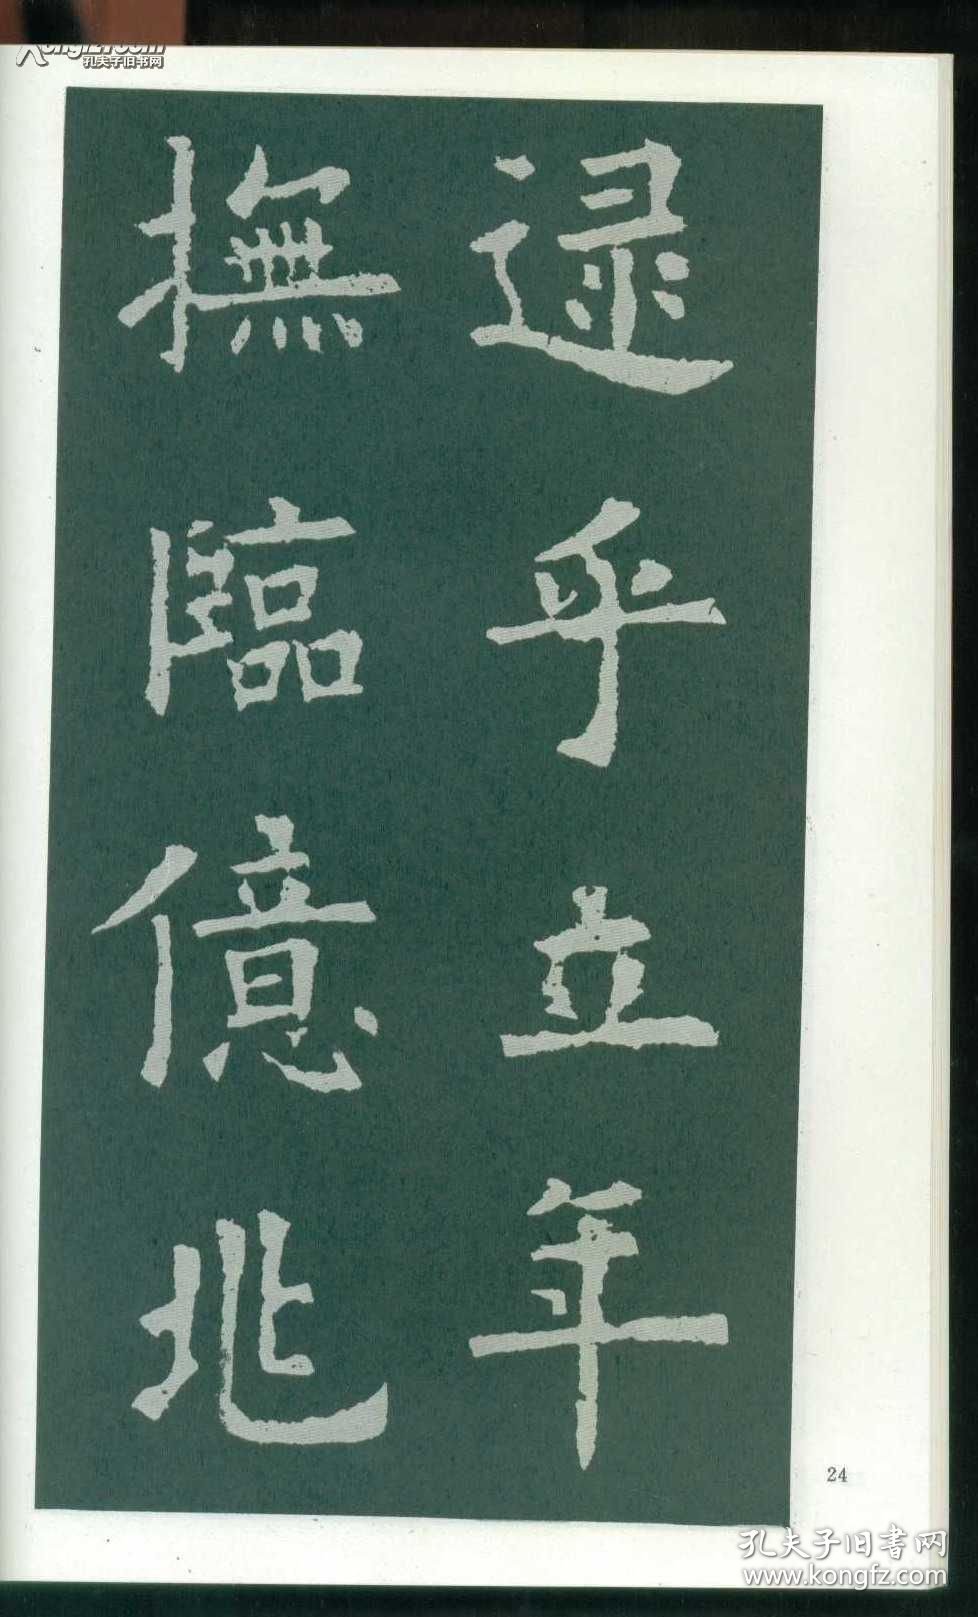 逯乎立年
撫臨億兆
24
孔夫子旧书网
孔夫子旧书网
www.kongfz.com